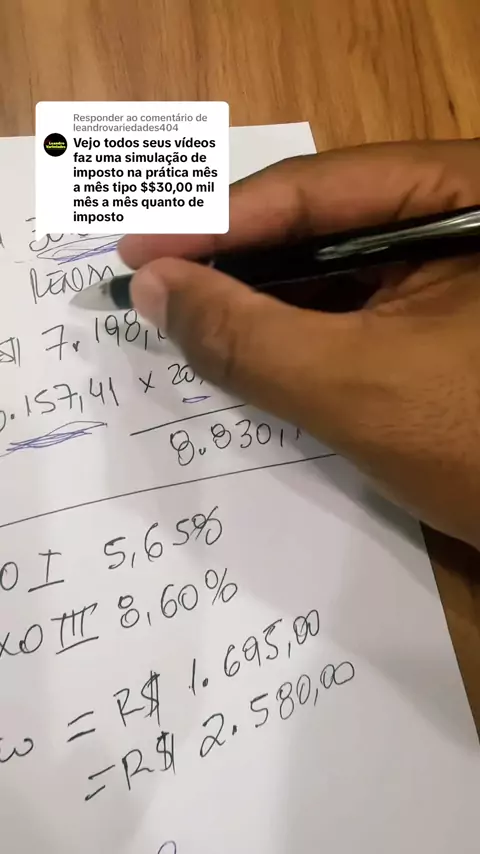 Responder ao comentário de
leandrovariedades404
Vejo todos seus vídeos
faz uma simulação de
imposto na prática mês
a mês tipo $$30,00 mil
mês a mês quanto de
imposto
7.198,
.157,41 x 20
8.830,
O I 5,65%
XO III 8,60%
= R$ 1.695,00
= R$ 2.580,00